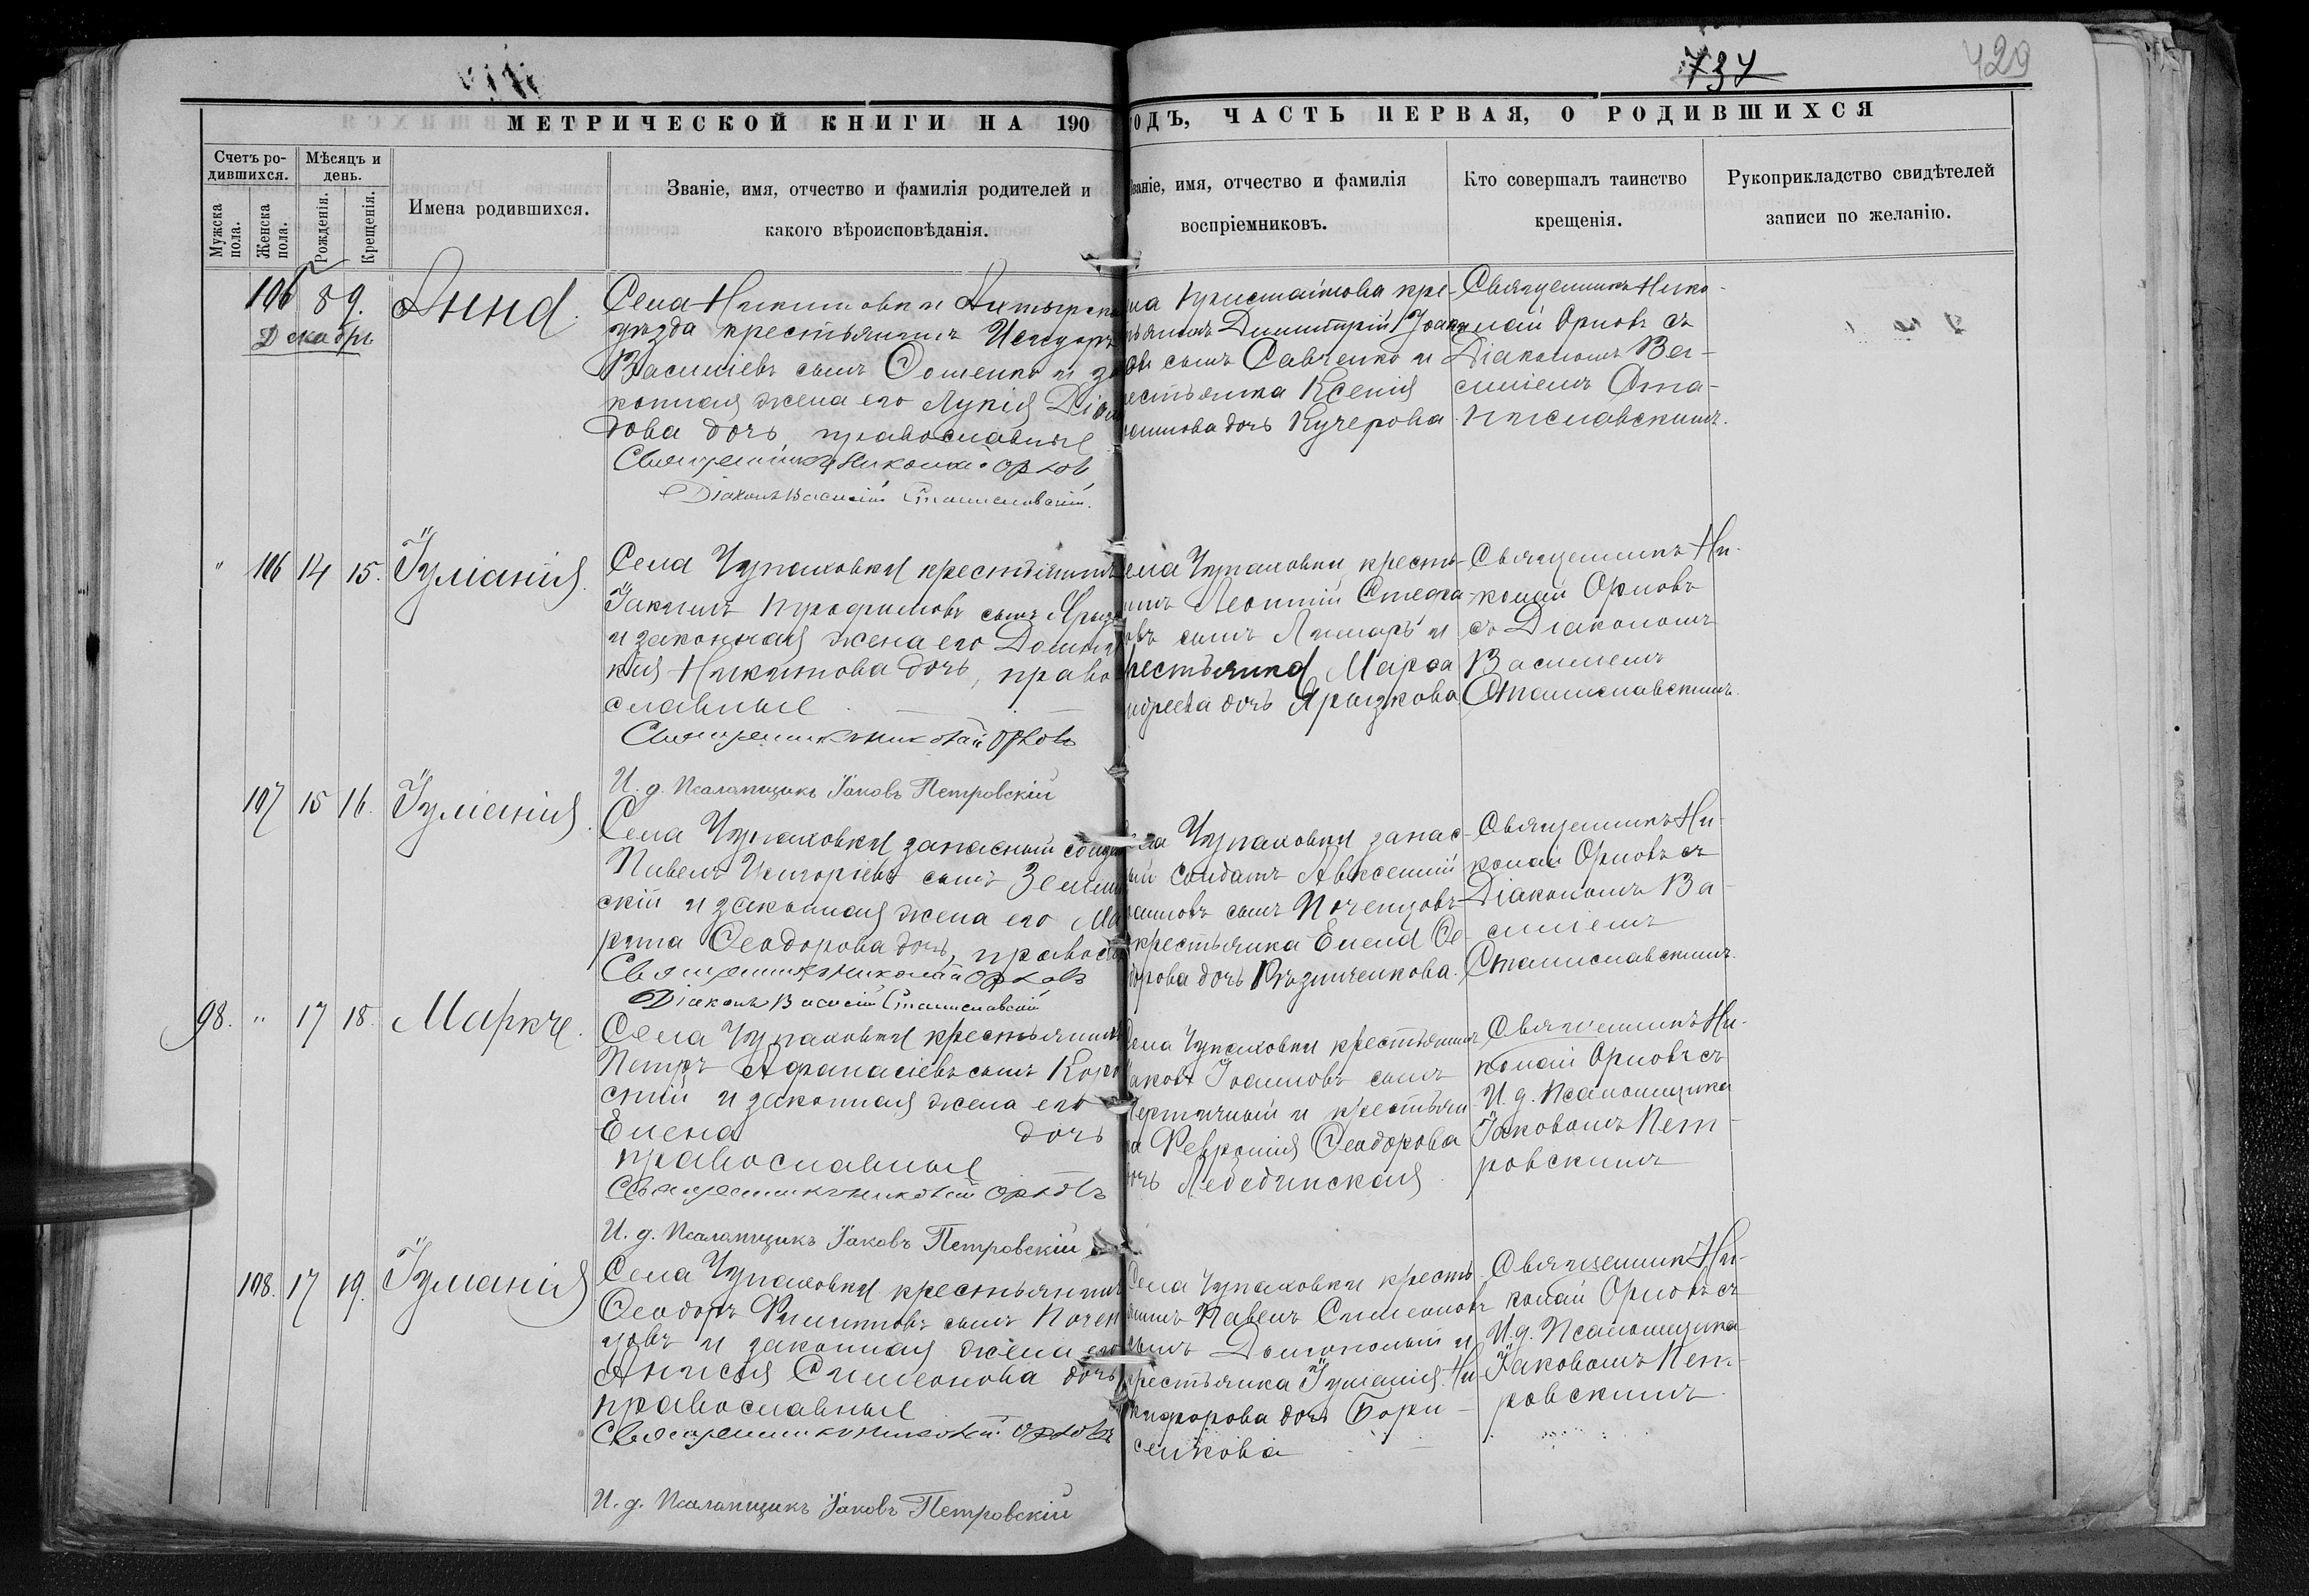 737
429
МЕТРИЧЕСКОЙ КНИГИ НА 190
ГОДЪ, ЧАСТЬ ПЕРВАЯ, О РОДИВШИХСЯ
Счетъ ро-
дившихся.
Мужска
пола.
Женска
пола.
Мѣсяцъ и
день.
Рожденія.
Крещенія.
Имена родившихся.
Званіе, имя, отчество и фамилія родителей и
какого вѣроисповѣданія.
Званіе, имя, отчество и фамилія
воспріемниковъ.
Кто совершалъ таинство
крещенія.
Рукоприкладство свидѣтелей
записи по желанію.
Декабрь
105 8 9. Анна
Села Никитовки Ахтырска
уѣзда крестьянинъ Исидоръ
Василіевъ сынъ Ѳоменко и за
конная жена его Лукія Діом
дова дочь, православные
Священникъ Николай Орловъ
Діаконъ Василій Станиславскій.
кре-
Димитрій Іоан
овъ сынъ Савченко и
крестьянка Ксенія
дочь Кучерова
Священникъ Нико-
лай Орловъ съ
Діакономъ Ва-
силіемъ Ста-
ниславскимъ.
" 106 14 15. Іуліанія.
Села Чупаховки крестьянинъ
Іакимъ Трофимовъ сынъ
и законная жена его Домни
кія Никитова дочь, право
славные
Священникъ Николай Орловъ
И. д. Псаломщикъ Іаковъ Петровскій
Села Чупаховки кресть-
нинъ Леонтій Стефа-
овъ сынъ Лимарь и
крестьянка Марѳа
ндреева дочь Ярызкова
Священникъ Ни-
колай Орловъ
съ Діакономъ
Василіемъ
Станиславскимъ.
107 15 16. Іуліанія.
Села Чупаховки запасный солда
Павелъ Григоріевъ сынъ Зелин
скій и законная жена его Ма
рина Ѳеодорова дочь, правосл
Священникъ Николай Орловъ
Діаконъ Василій Станиславскій
Села Чупаховки запас-
ый солдатъ Авксентій
оанновъ сынъ Поченцовъ
крестьянка Елена Ѳе-
дорова дочь
Священникъ Ни-
колай Орловъ съ
Діакономъ Ва-
силіемъ
Станиславскимъ.
98. " 17 18. Маркъ.
Села Чупаховки крестьянинъ
Петръ Аѳанасіевъ сынъ
скій и законная жена его
Елена дочь
православные
Священникъ Николай Орловъ
И. д. Псаломщикъ Іаковъ Петровскій
Села Чупаховки крестьянинъ
Іаковъ Іоанновъ сынъ
и крестьян
ка Февронія Ѳеодорова
дочь Лебединская
Священникъ Ни-
колай Орловъ съ
И. д. Псаломщика
Іаковомъ Пет-
ровскимъ
108. 17 19. Іуліанія
Села Чупаховки крестьянинъ
Ѳеодоръ Филипповъ сынъ Почен
цовъ и законная жена его
Анисія Симеонова дочь
православные
Священникъ Николай Орловъ
И. д. Псаломщикъ Іаковъ Петровскій
Села Чупаховки кресть
янинъ Павелъ Симеоновъ
сынъ и
крестьянка Іуліанія Ни-
кифорова дочь Бори-
сенкова
Священникъ Ни-
колай Орловъ съ
И. д. Псаломщика
Іаковомъ Пет-
ровскимъ.